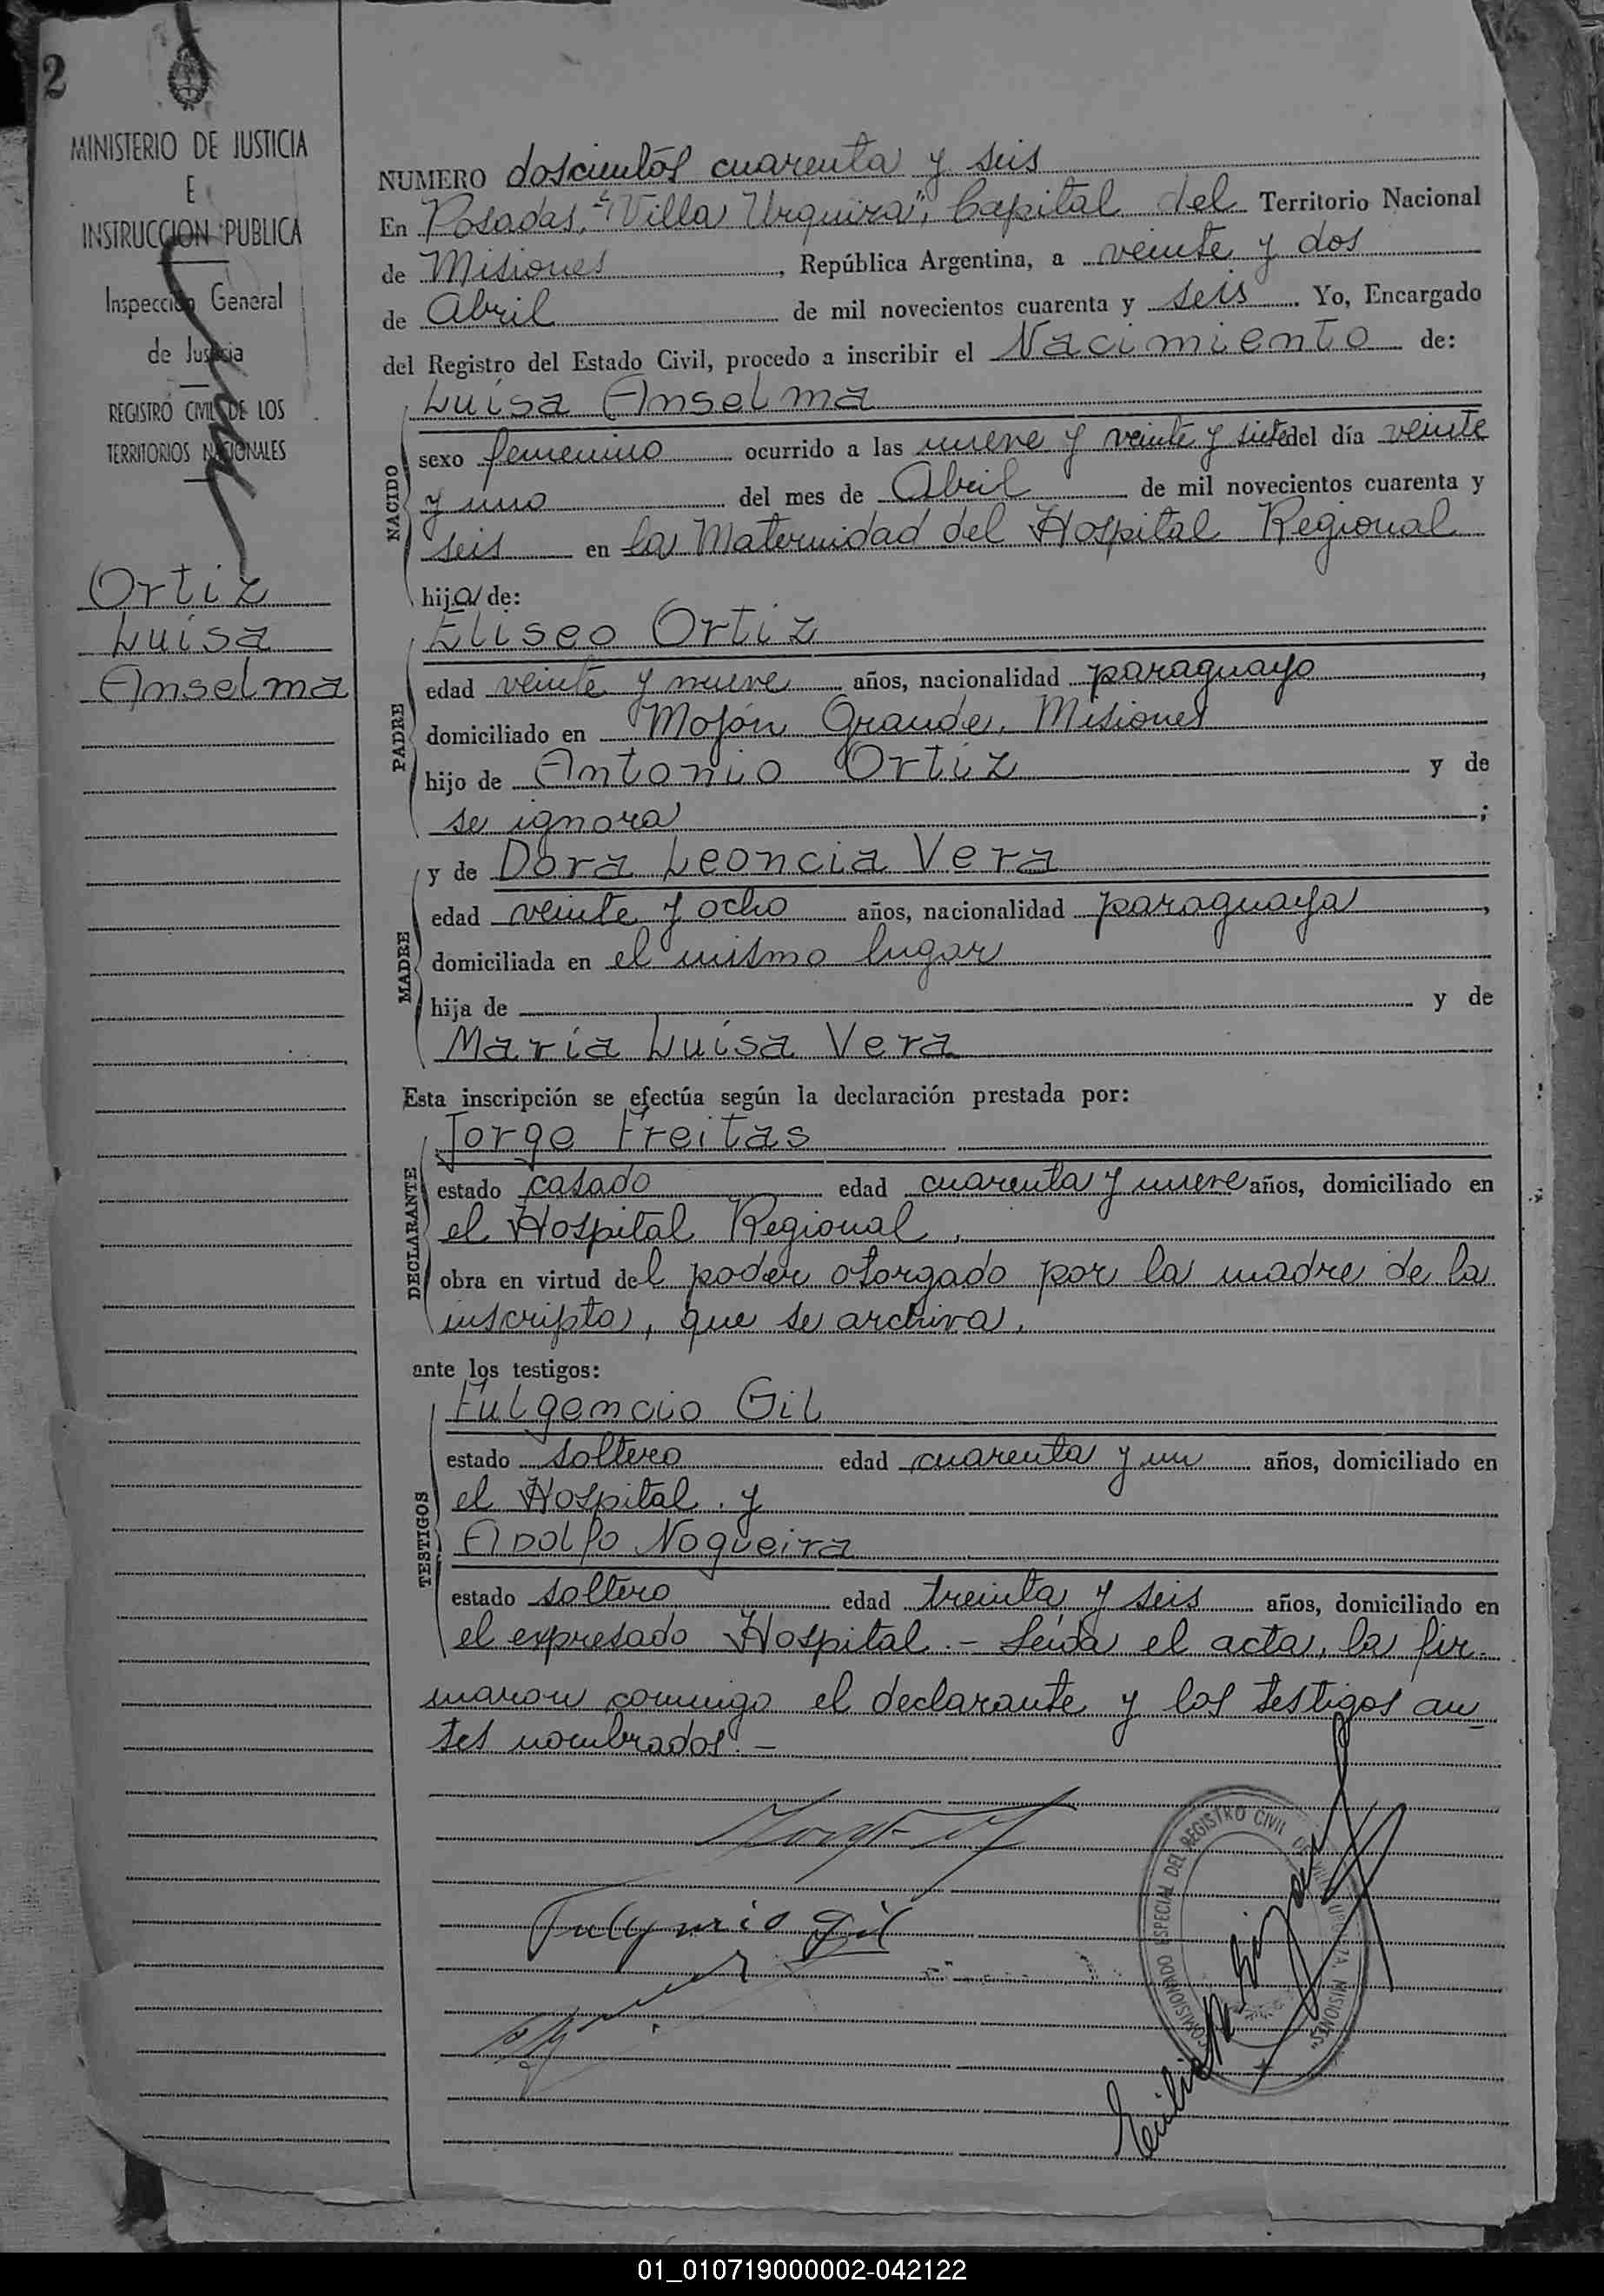 2
MINISTERIO DE JUSTICIA
E
INSTRUCCION PUBLICA
Inspección General
de Justicia
REGISTRO CIVIL DE LOS
TERRITORIOS NACIONALES
Ortiz
Luisa
Anselma
NUMERO doscientos cuarenta y seis
En Posadas, "Villa Urquiza", Capital del Territorio Nacional
de Misiones, República Argentina, a veinte y dos
de Abril de mil novecientos cuarenta y seis. Yo, Encargado
del Registro del Estado Civil, procedo a inscribir el Nacimiento de:
Luisa Anselma
NACIDO
sexo femenino ocurrido a las nueve y veinte y siete del día veinte
y uno del mes de Abril de mil novecientos cuarenta y
seis en la Maternidad del Hospital Regional
hija de:
Eliseo Ortiz
PADRE
edad veinte y nueve años, nacionalidad paraguayo,
domiciliado en Mojón Grande, Misiones
hijo de Antonio Ortiz y de
se ignora;
y de Dora Leoncia Vera
MADRE
edad veinte y ocho años, nacionalidad paraguaya,
domiciliada en el mismo lugar
hija de y de
María Luisa Vera
Esta inscripción se efectúa según la declaración prestada por:
Jorge Freitas
DECLARANTE
estado casado edad cuarenta y nueve años, domiciliado en
el Hospital Regional,
obra en virtud del poder otorgado por la madre de la
inscripta, que se archiva,
ante los testigos:
Fulgencio Gil
TESTIGOS
estado soltero edad cuarenta y un años, domiciliado en
el Hospital, y
Adolfo Nogueira
estado soltero edad treinta y seis años, domiciliado en
el expresado Hospital.- Leída el acta, la fir-
maron conmigo el declarante y los testigos an-
tes nombrados.-
Fulgencio Gil
COMISIONADO ESPECIAL DEL REGISTRO CIVIL DE VILLA URQUIZA MISIONES
01_010719000002-042122